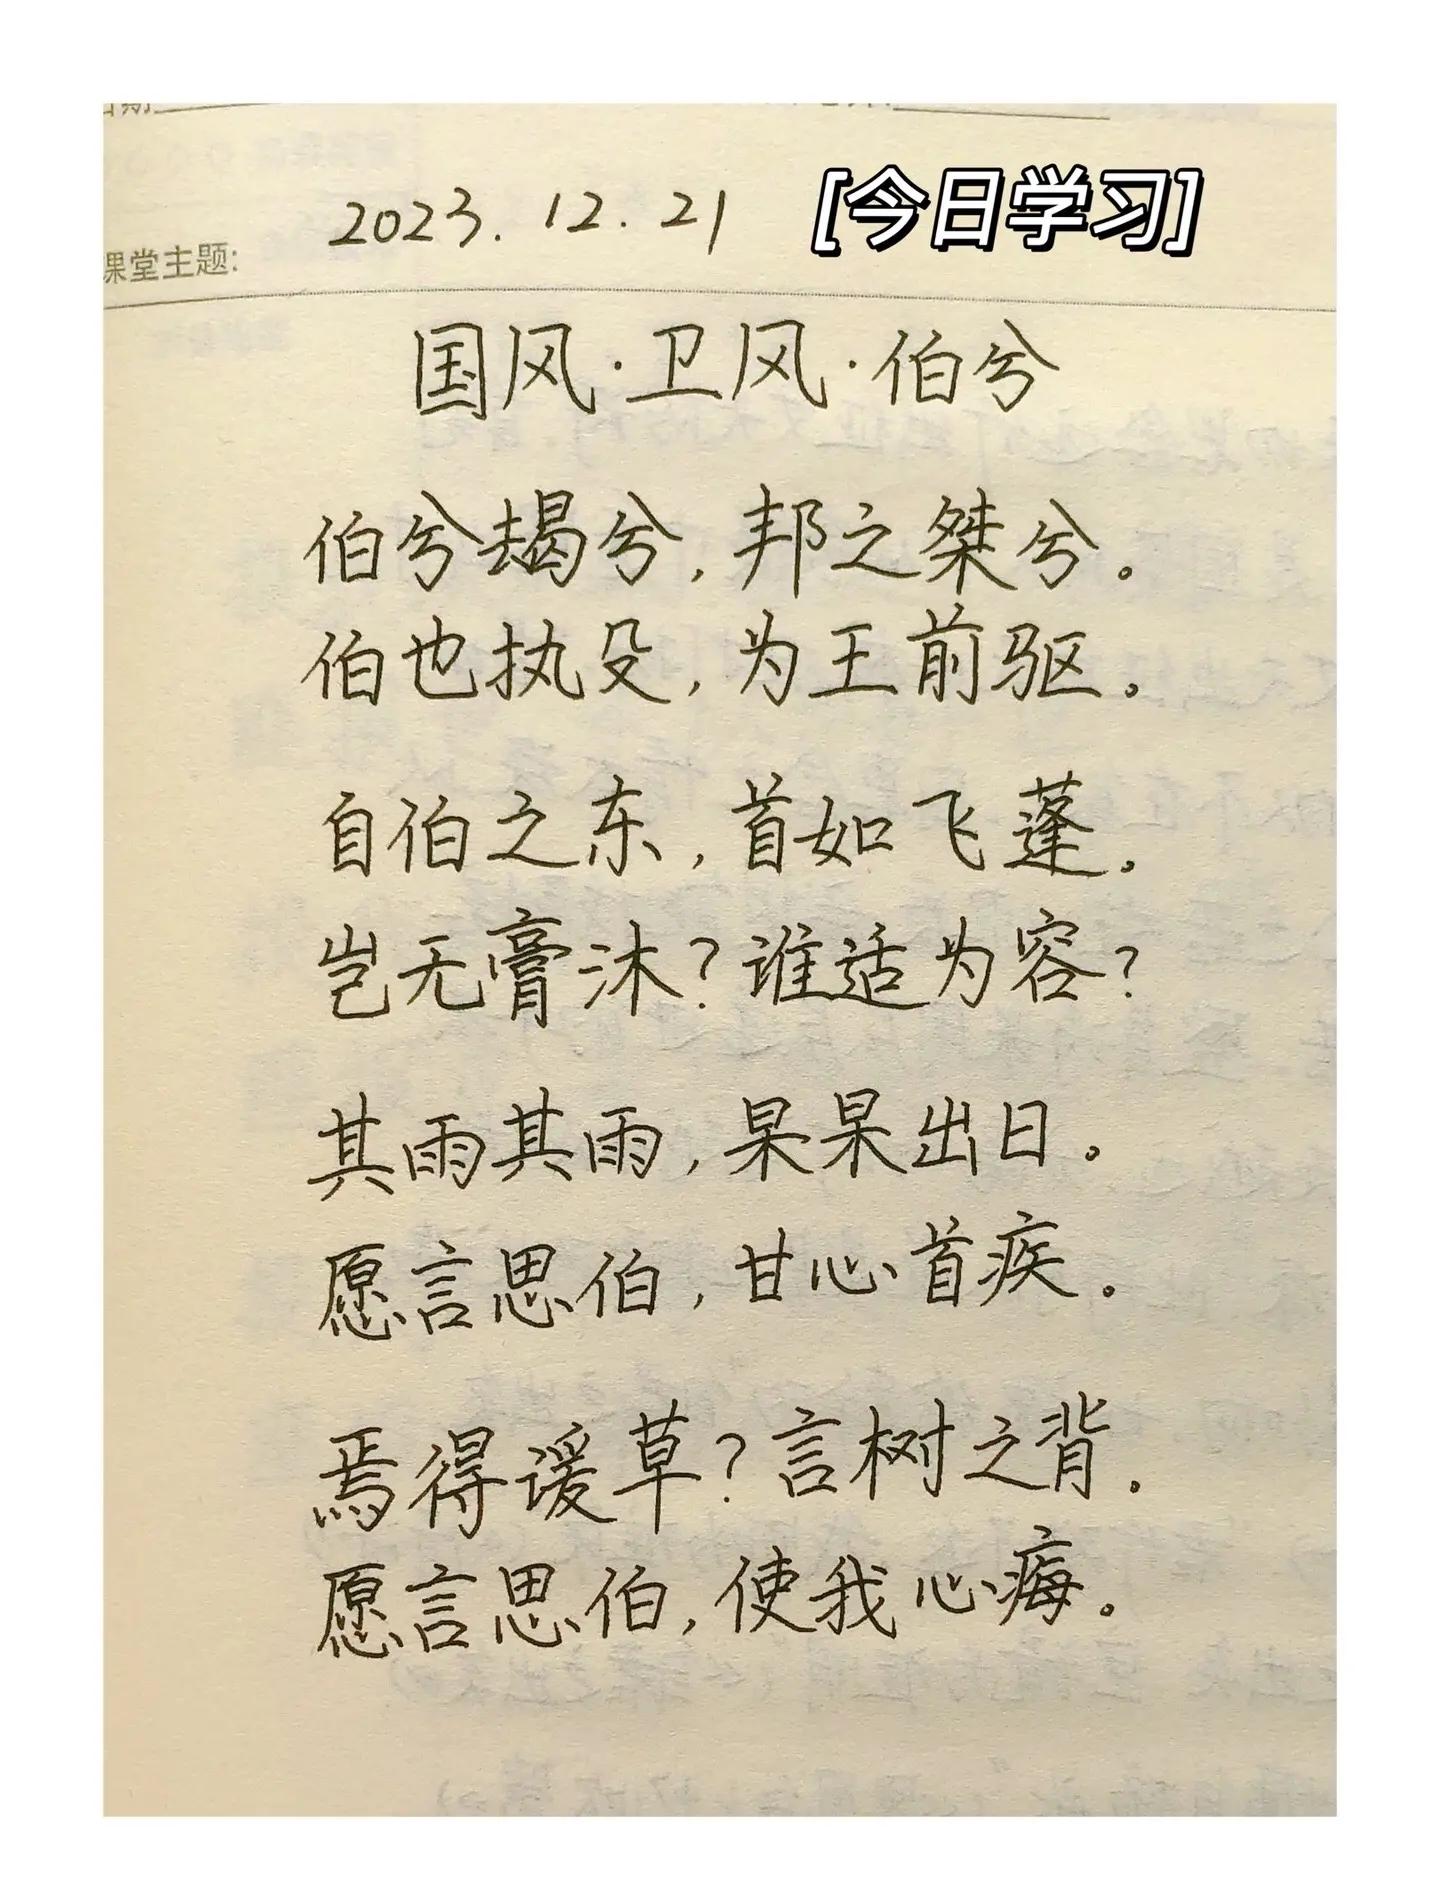 2023.12.21 [今日学习]
课堂主题:
国风·卫风·伯兮
伯兮朅兮,邦之桀兮。
伯也执殳,为王前驱。
自伯之东,首如飞蓬。
岂无膏沐?谁适为容?
其雨其雨,杲杲出日。
愿言思伯,甘心首疾。
焉得谖草?言树之背。
愿言思伯,使我心痗。